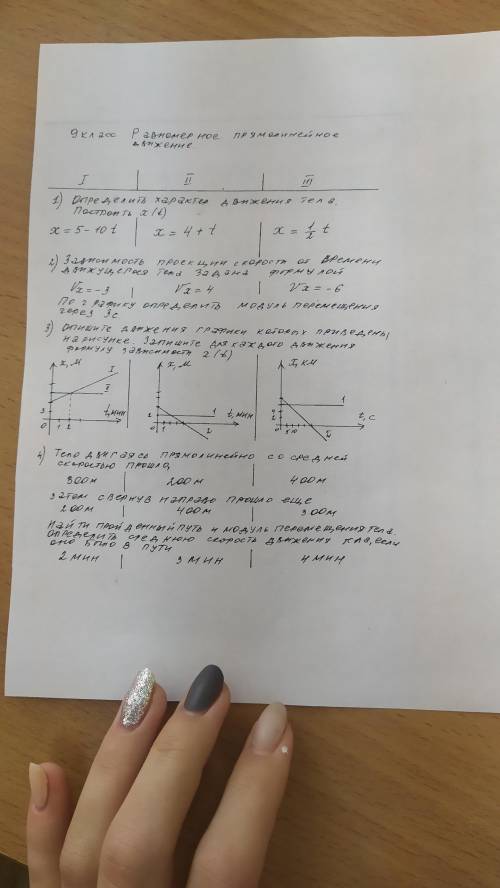 9 класс Равномерное прямолинейное
движение
I II III
1) Определить характер движения тела.
Построить x(t)
x = 5 - 10t x = 4 + t x = 1/2 t
2) Зависимость проекции скорости от времени
движущегося тела задана формулой
Vx = -3 Vx = 4 Vx = -6
По графику определить модуль перемещения
через 3с
3) Опишите движения графики которых приведены
на рисунке. Запишите для каждого движения
формулу зависимости x(t)
x, м I II 3 0 1 2 t, мин
x, м 2 0 1 2 t, мин
x, км 0 5 10 1 II t, с
4) Тело двигаясь прямолинейно со средней
скоростью прошло,
300м 200м 400м
затем свернув направо прошло еще
200м 400м 300м
Найти пройденный путь и модуль перемещения тела.
Определить среднюю скорость движения тела, если
оно было в пути
2 мин 3 мин 4 мин